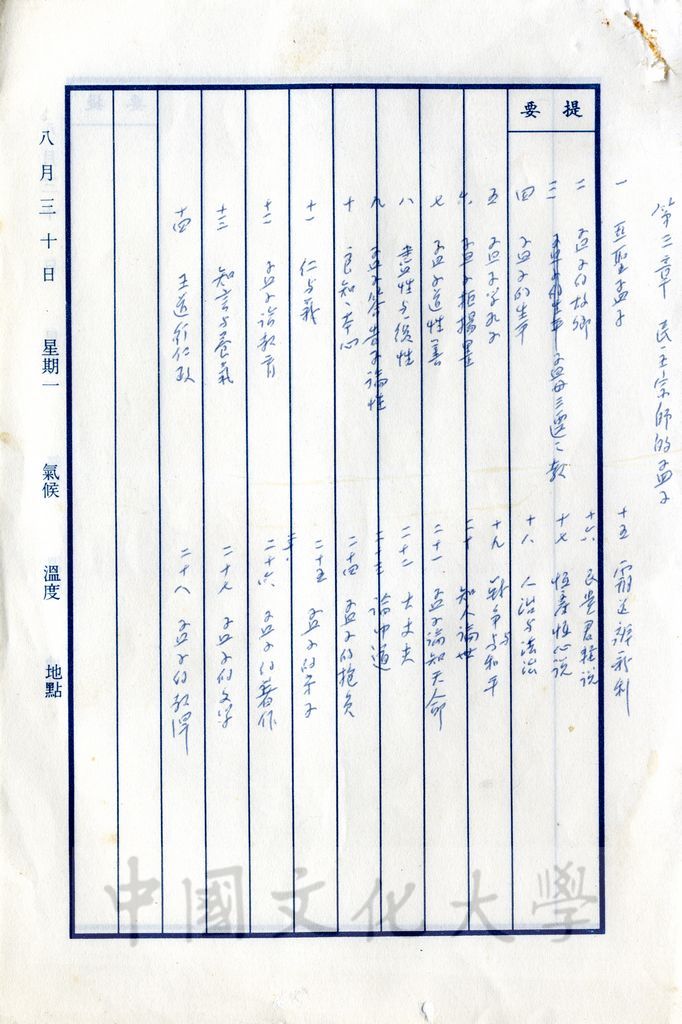 提要
第三章 民主宗師的孟子
一 亞聖孟子
二 孟子的故鄉
三 孟母三遷之教
四 孟子的生平
五 孟子學孔子
六 孟子拒楊墨
七 孟子道性善
八 盡性與復性
九 孟子答告子論性
十 良知、本心
十一 仁與義
十二 孟子論教育
十三 知言與養氣
十四 王道行仁政
十五 霸道辨義利
十六 民貴君輕說
十七 恆產恆心說
十八 人治與法治
十九 戰爭與和平
二十 知人論世
二十一 孟子論知天命
二十二 大丈夫
二十三 論中道
二十四 孟子的抱負
二十五 孟子的弟子
二十六 孟子的著作
二十七 孟子的文學
二十八 孟子的教澤
八月三十日 星期一 氣候 溫度 地點
中國文化大學